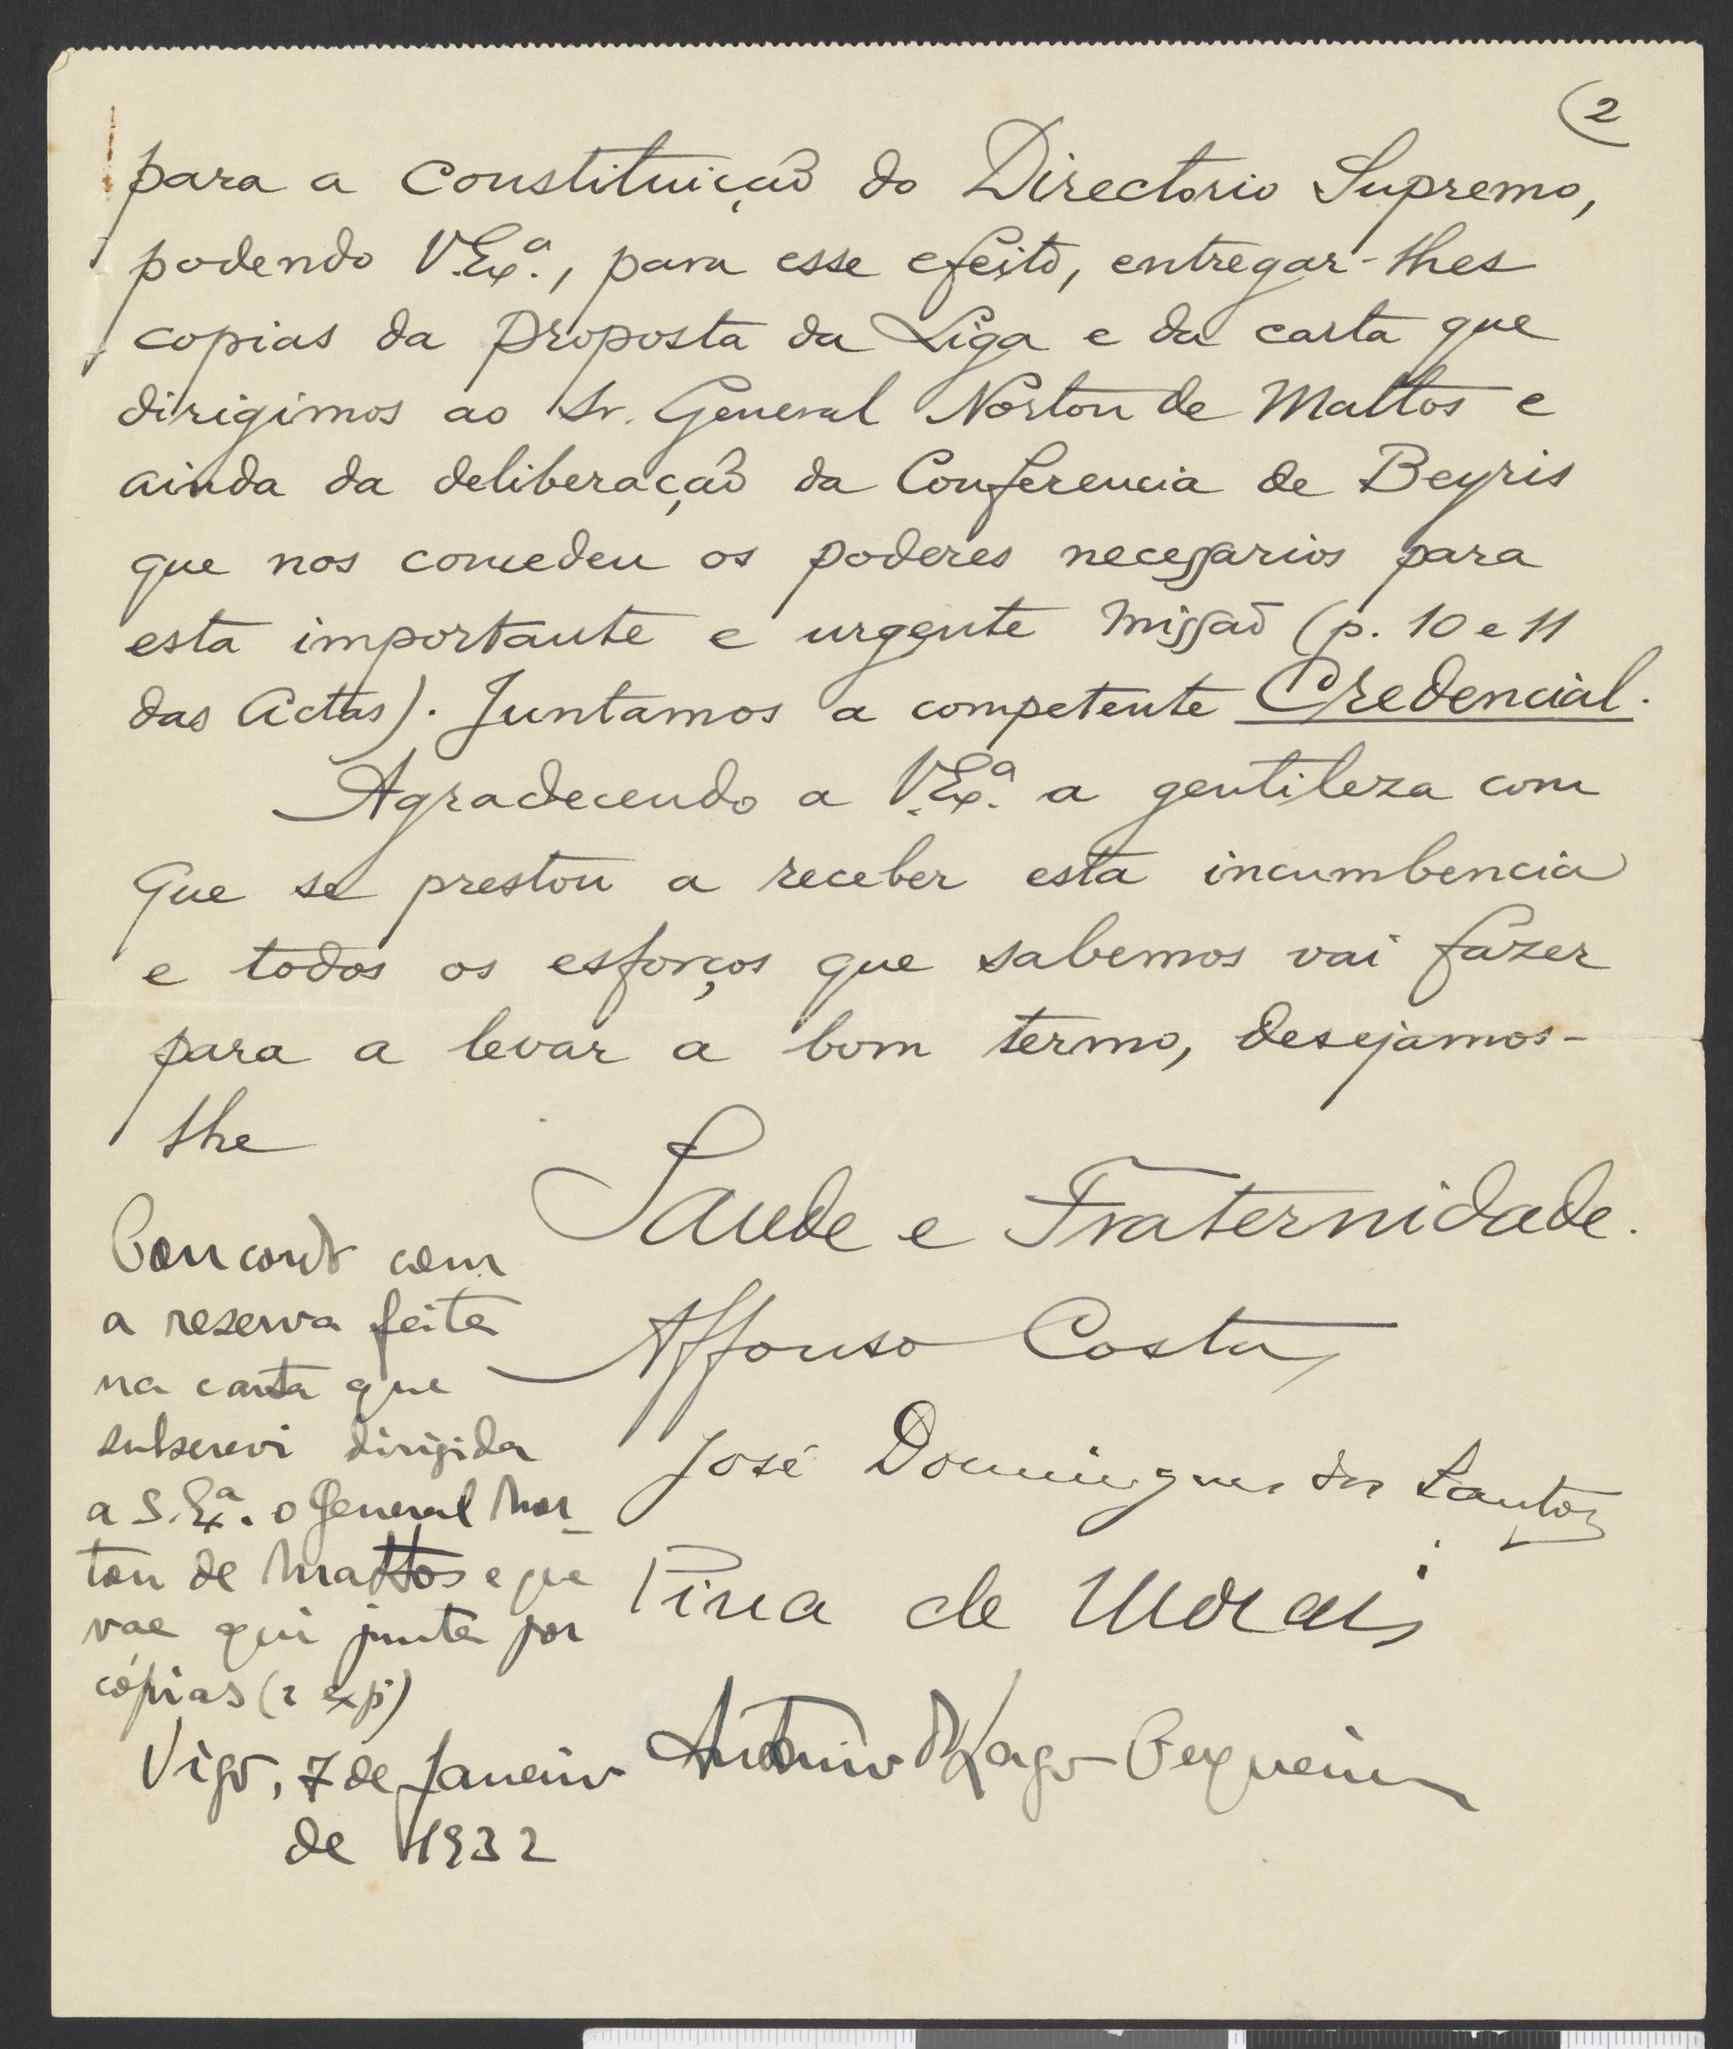 2
para a Constituição do Directorio Supremo,
podendo V. Ex.ª, para esse efeito, entregar-lhes
copias da proposta da Liga e da carta que
dirigimos ao Sr. General Norton de Mattos e
ainda da deliberação da Conferencia de Beyris
que nos concedeu os poderes necessarios para
esta importante e urgente missão (p. 10 e 11
das Actas). Juntamos a competente Credencial.
Agradecendo a V. Ex.ª a gentileza com
que se prestou a receber esta incumbencia
e todos os esforços que sabemos vai fazer
para a levar a bom termo, desejamos-
lhe
Saude e Fraternidade.
Affonso Costa
José Domingues dos Santos
Pina de Morais
Concordo com
a reserva feita
na carta que
subscrevi dirigida
a S. Exª. o General Nor-
ton de Mattos e que
vae qui junta por
cópias (2 exp)
Vigo, 7 de Janeiro
de 1932
Antonio Lago Cerqueira